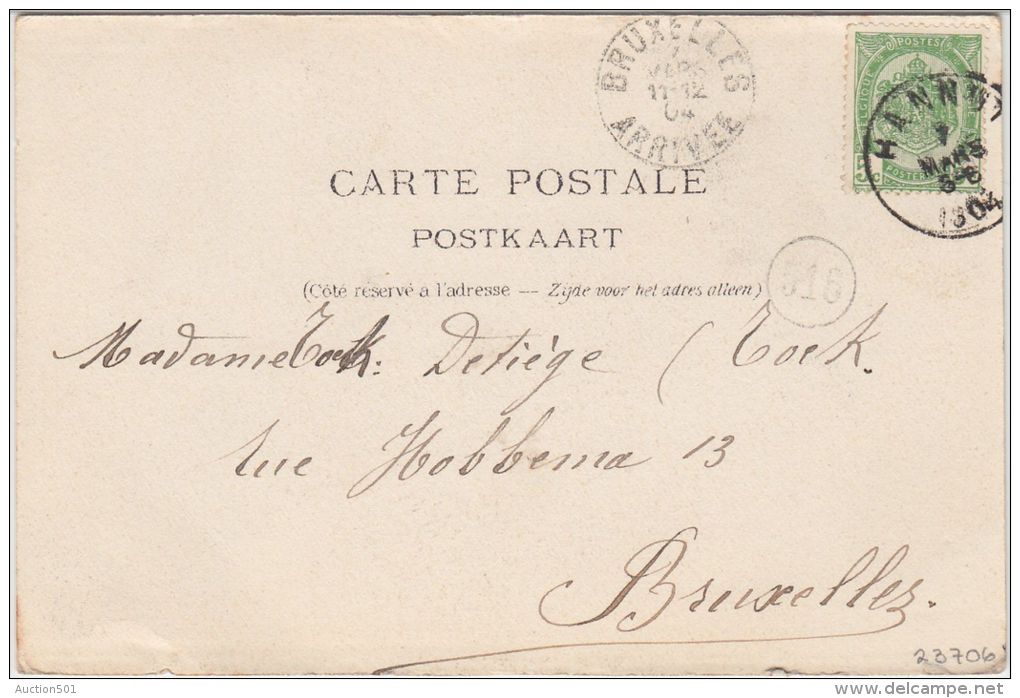 BRUXELLES
1
MARS
11-12
04
ARRIVEE
POSTES
BELGIQUE
POSTERIJEN
5
HANNUT
1
MARS
5-6
1904
CARTE POSTALE
POSTKAART
(Côté réservé a l'adresse — Zijde voor het adres alleen)
516
Madame Toek. Detiége (Toek.
rue Hobbema 13
Bruxelles.
23706
Auction501
delcampe.net